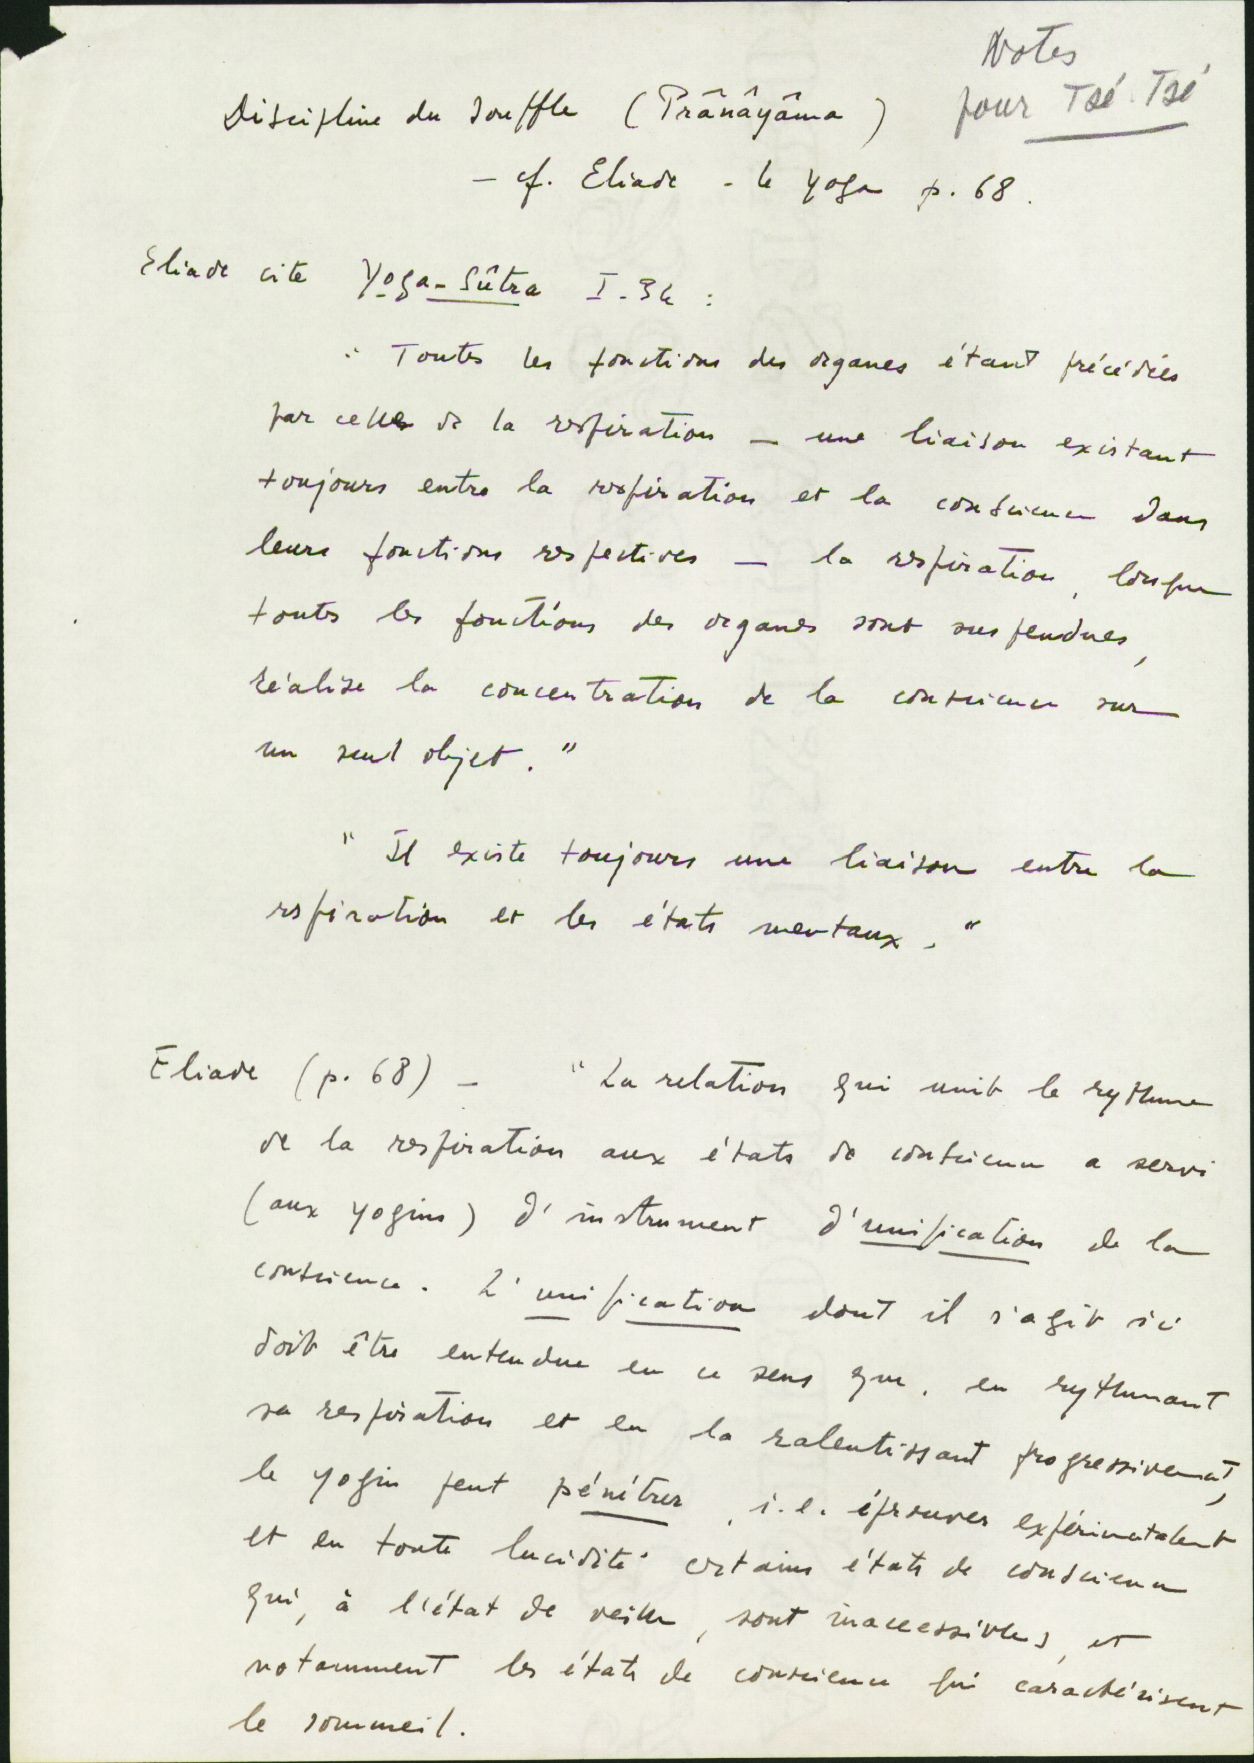 Notes
pour Tsé-Tsé
Discipline du souffle (Prânâyâma)
– cf. Eliade - le yoga p. 68.
Eliade cite Yoga-Sûtra I-34 :
" Toutes les fonctions des organes étant précédées
par celle de la respiration – une liaison existant
toujours entre la respiration et la conscience dans
leurs fonctions respectives – la respiration, lorsque
toutes les fonctions des organes sont suspendues,
réalise la concentration de la conscience sur
un seul objet. "
" Il existe toujours une liaison entre la
respiration et les états mentaux. "
Eliade (p. 68) – " La relation qui unit le rythme
de la respiration aux états de conscience a servi
(aux yogins) d'instrument d'unification de la
conscience. L'unification dont il s'agit ici
doit être entendue en ce sens que, en rythmant
sa respiration et en la ralentissant progressivement,
le yogin peut pénétrer, i.e. éprouver expérimentalement
et en toute lucidité certains états de conscience
qui, à l'état de veille, sont inaccessibles, et
notamment les états de conscience qui caractérisent
le sommeil.